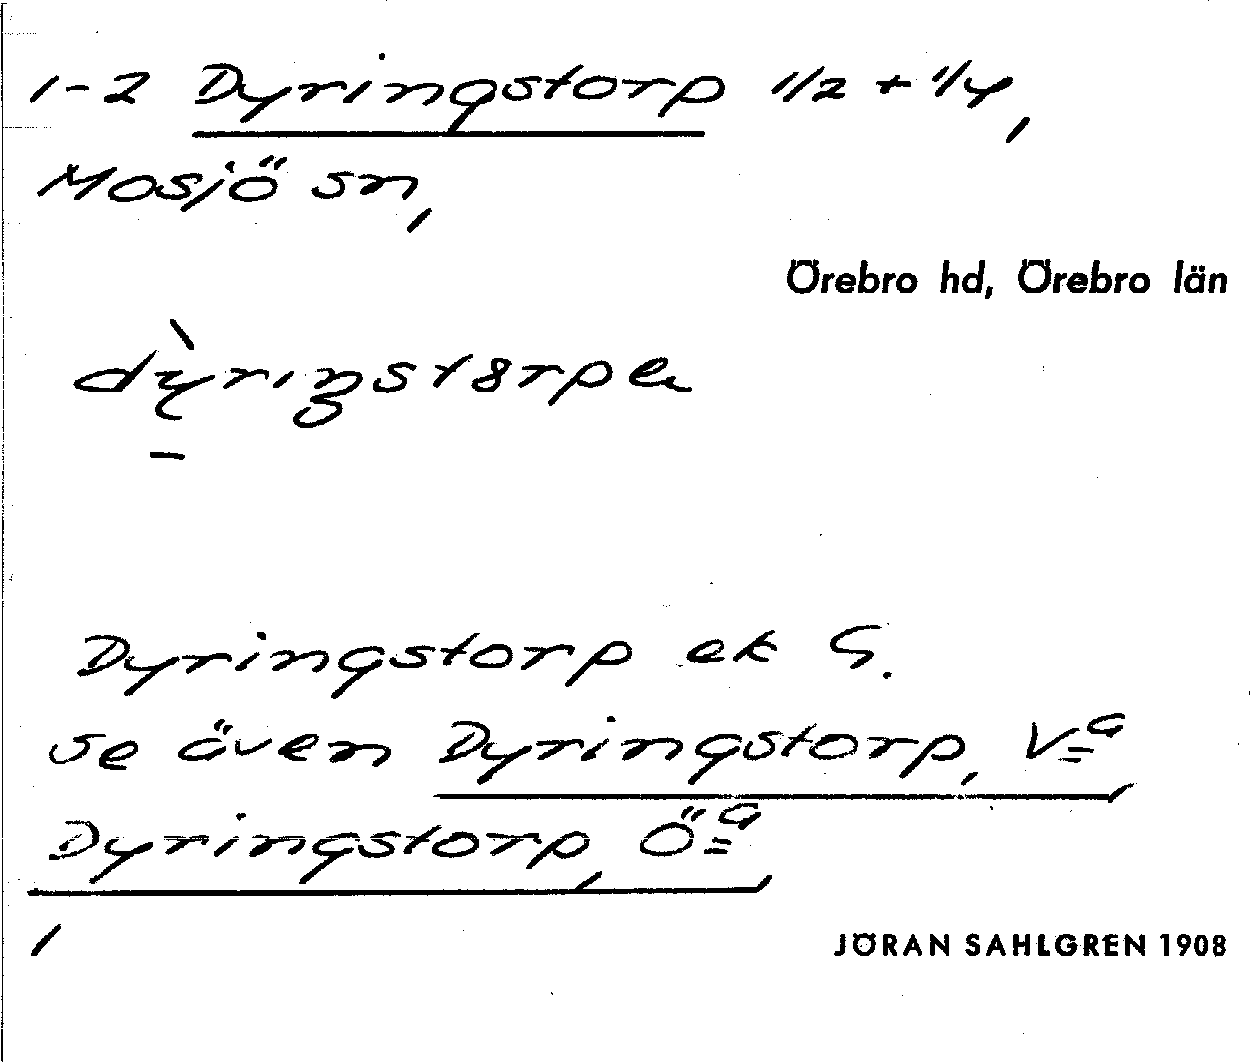 1-2 Dyringstorp 1/2 + 1/4,
Mosjö sn,
Örebro hd, Örebro län
Dyringstorp ek G.
se även Dyringstorp, V=a,
Dyringstorp, Ö=a,
JÖRAN SAHLGREN 1908